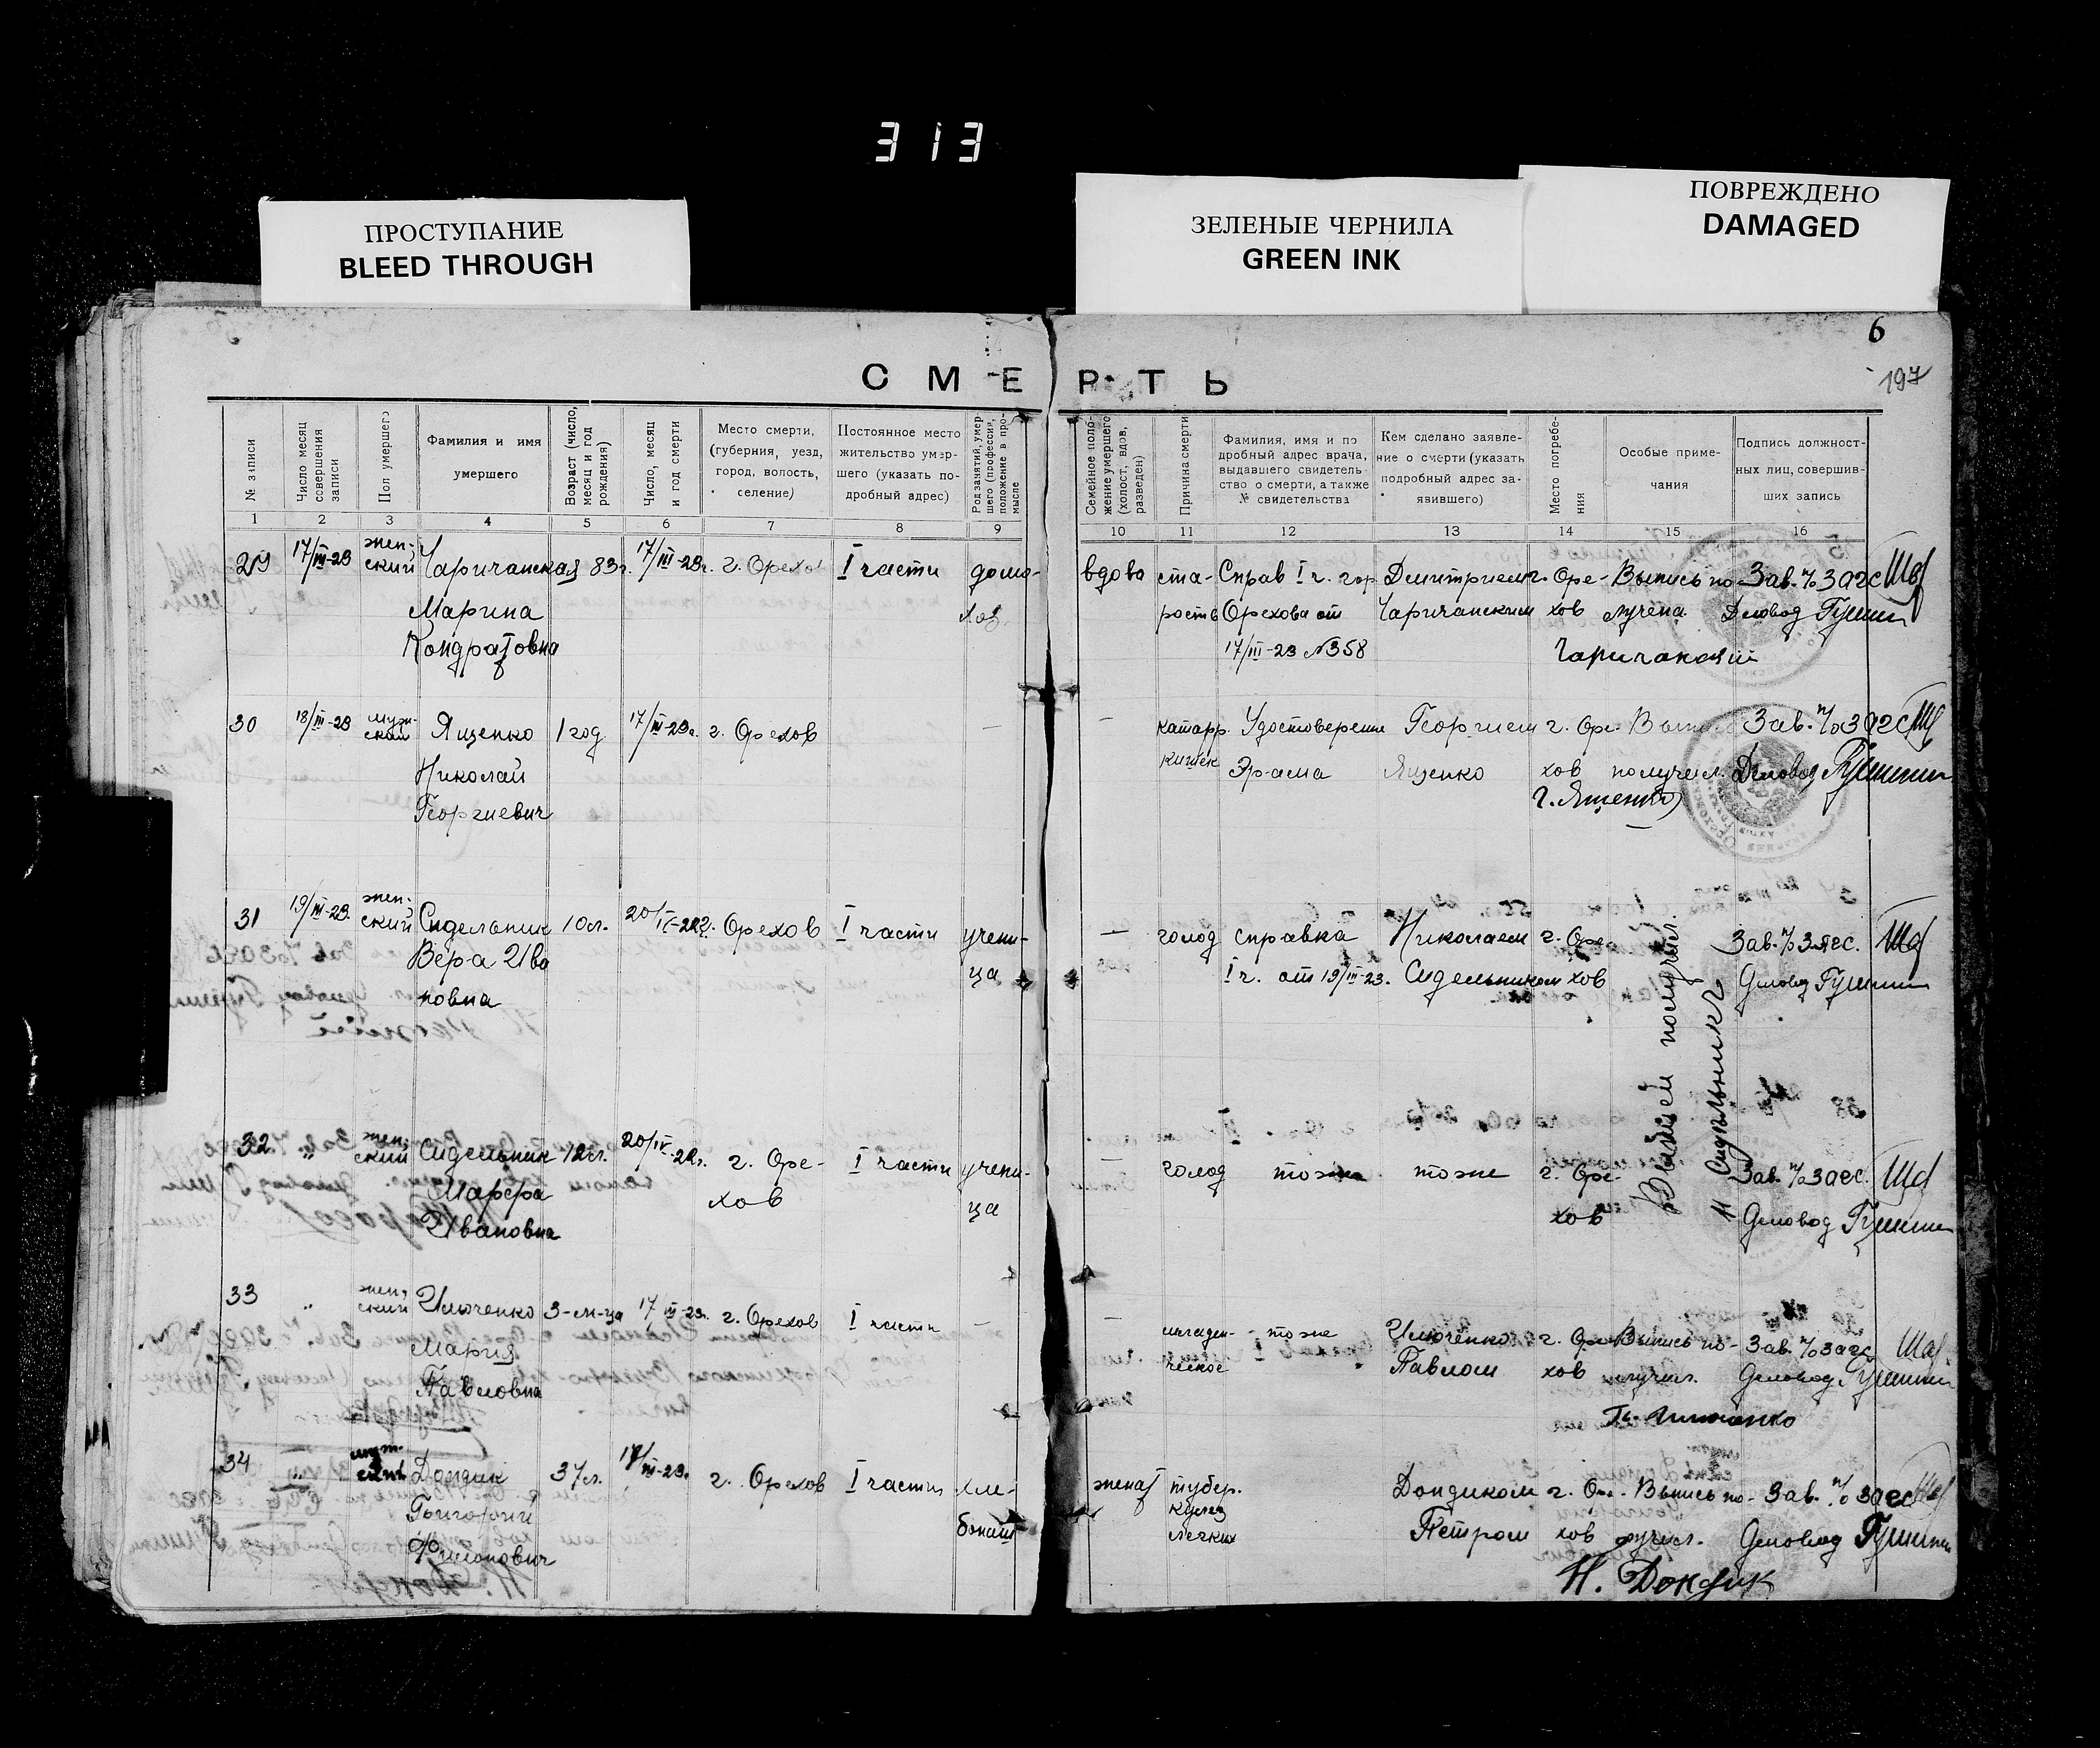 313
ПРОСТУПАНИЕ
BLEED THROUGH
ЗЕЛЕНЫЕ ЧЕРНИЛА
GREEN INK
ПОВРЕЖДЕНО
DAMAGED
6
197
СМЕРТЬ
№ записи
Число месяц совершения записи
Пол умершего
Фамилия и имя умершего
Возраст (число, месяц и год рождения)
Число, месяц и год смерти
Место смерти, (губерния, уезд, город, волость, селение)
Постоянное место жительство умершего (указать подробный адрес)
Род занятий, умершего (профессия, положение в промысле
Семейное положение умершего (холост, вдов, разведен)
Причина смерти
Фамилия, имя и подробный адрес врача, выдавшего свидетельство о смерти, а также № свидетельства
Кем сделано заявление о смерти (указать подробный адрес заявившего)
Место погребения
Особые примечания
Подпись должностных лиц, совершивших запись
1 2 3 4 5 6 7 8 9 10 11 12 13 14 15 16
29 17/III-23 женский Чаричанская 83г. 17/III-23г. г. Орехов I части домо- вдова ста- Справ I ч. гор Дмитрием г. Оре- Выпись по- Зав. п/о Загс
Марина хоз. рость Орехова от Чаричанским хов лучена Деловод
Кондратовна 17/III-23 №358 Чаричанский
30 18/III-23 мужской Ященко 1 год 17/III-23г. г. Орехов — — катарр. Удостоверение Георгием г. Оре- Зав. п/о Загс
Николай кишек Ященко хов получил. Деловод
Георгиевич Г. Ященко
31 19/III-23. женский Сидельник 10л. 20/IV-22г. Орехов I части учени- — голод справка Николаем г. Оре- Зав. п/о Загс.
Вера Ива ца I ч. от 19/III-23. Сидельником хов Деловод
новна
Выписей получил.
Н Сидельник
32 " женский Сидельник 12л. 20/IV-22г. г. Оре- I части учени- — голод тоже тоже г. Оре- Зав. п/о Загс.
Марфа хов ца хов Деловод
Ивановна
33 " женский Илюченко 3-м-ца 17/III-23г. г. Орехов I части — — тоже Илюченко г. Оре- Выпись по- Зав. п/о Загс
Мария Павлом хов лучил. Деловод
Павловна
34 " Дондик 37л. 17/III-23. г. Орехов I части хле- женат тубер. Дондиком г. Оре- Выпись по- Зав. п/о Загс
Григорий бопаш- кулез Петром хов лучил. Деловод
Филипович легких Н. Дондик